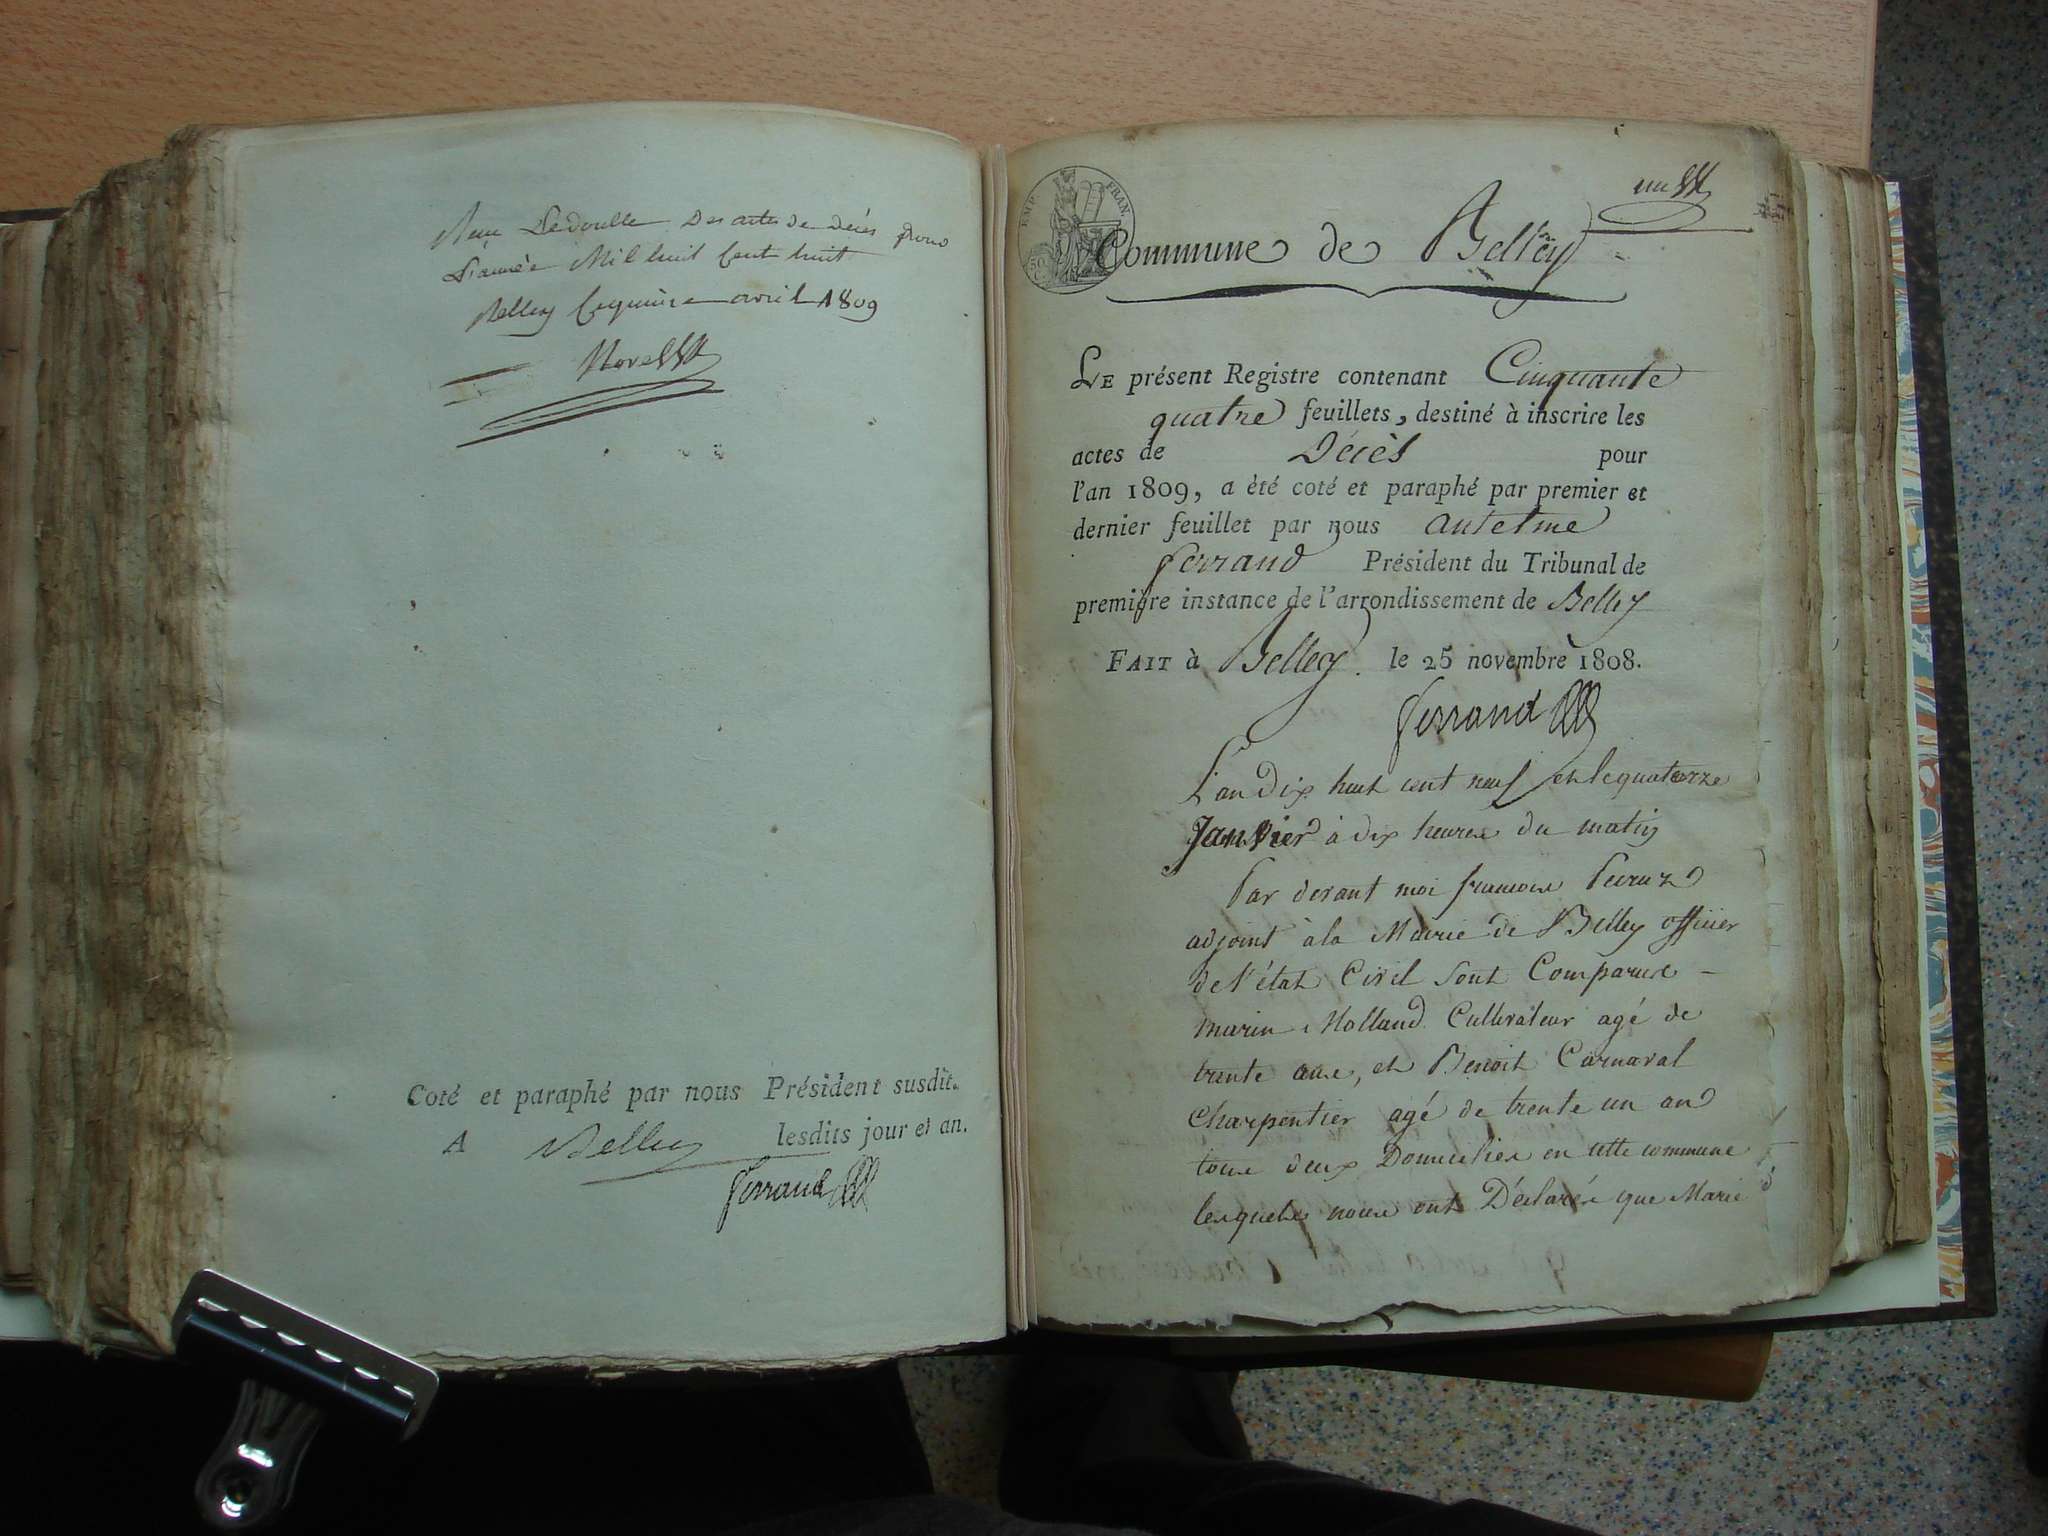 Reçu Le double Des actes de Décès pour
L'année Mil huit Cent huit
Belley Ce premier avril 1809
Morel
Coté et paraphé par nous Président susdit.
A Belley lesdits jour et an.
Ferrand
EMP. FRAN.
un
Commune de Belley
LE présent Registre contenant Cinquante
quatre feuillets, destiné à inscrire les
actes de Décès pour
l'an 1809, a été coté et paraphé par premier et
dernier feuillet par nous antelme
ferrand Président du Tribunal de
première instance de l'arrondissement de Belley
FAIT à Belley. le 25 novembre 1808.
ferrand
L'an Dix huit cent neuf et le quatorze
Janvier à dix heures du matin
Par devant moi francois
adjoint à la Mairie de Belley officier
de l'état Civil sont Comparus
marin Molland Cultivateur agé de
trente ans, et Benoit Carnaval
Charpentier agé de trente un an
tous deux Domiciliés en cette commune
lesquels nous ont Déclarés que Marie